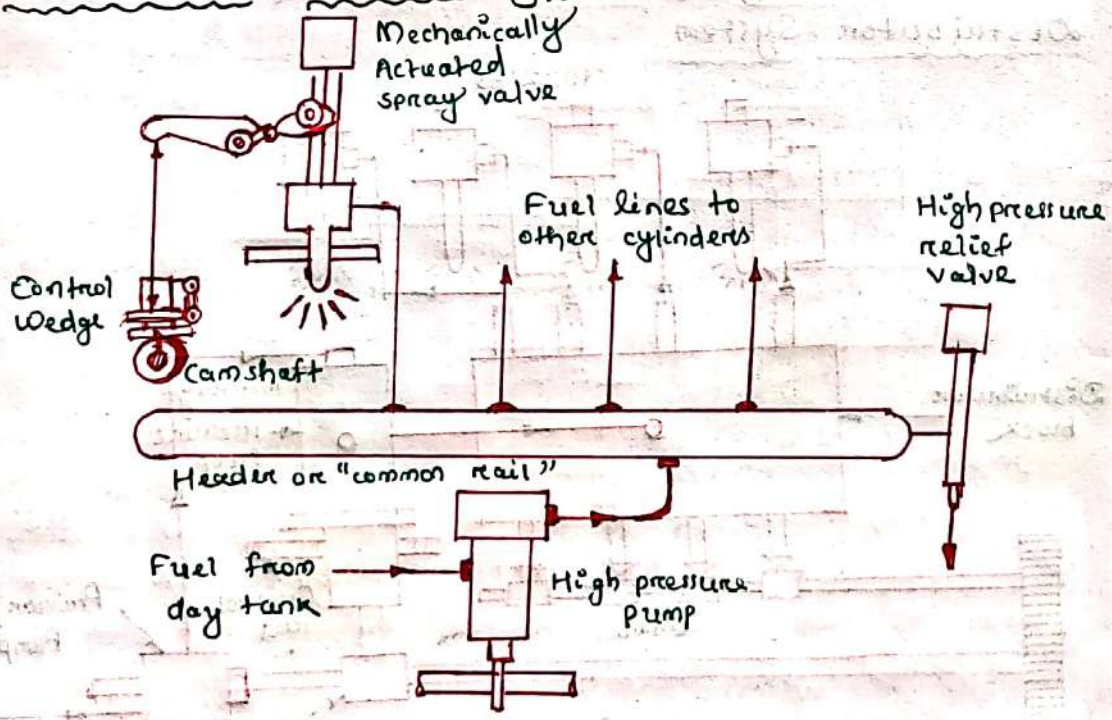 Mechanically
Actuated
spray valve
Fuel lines to
other cylinders
High pressure
relief
valve
Control
Wedge
Camshaft
Header or "common rail"
Fuel from
day tank
High pressure
pump